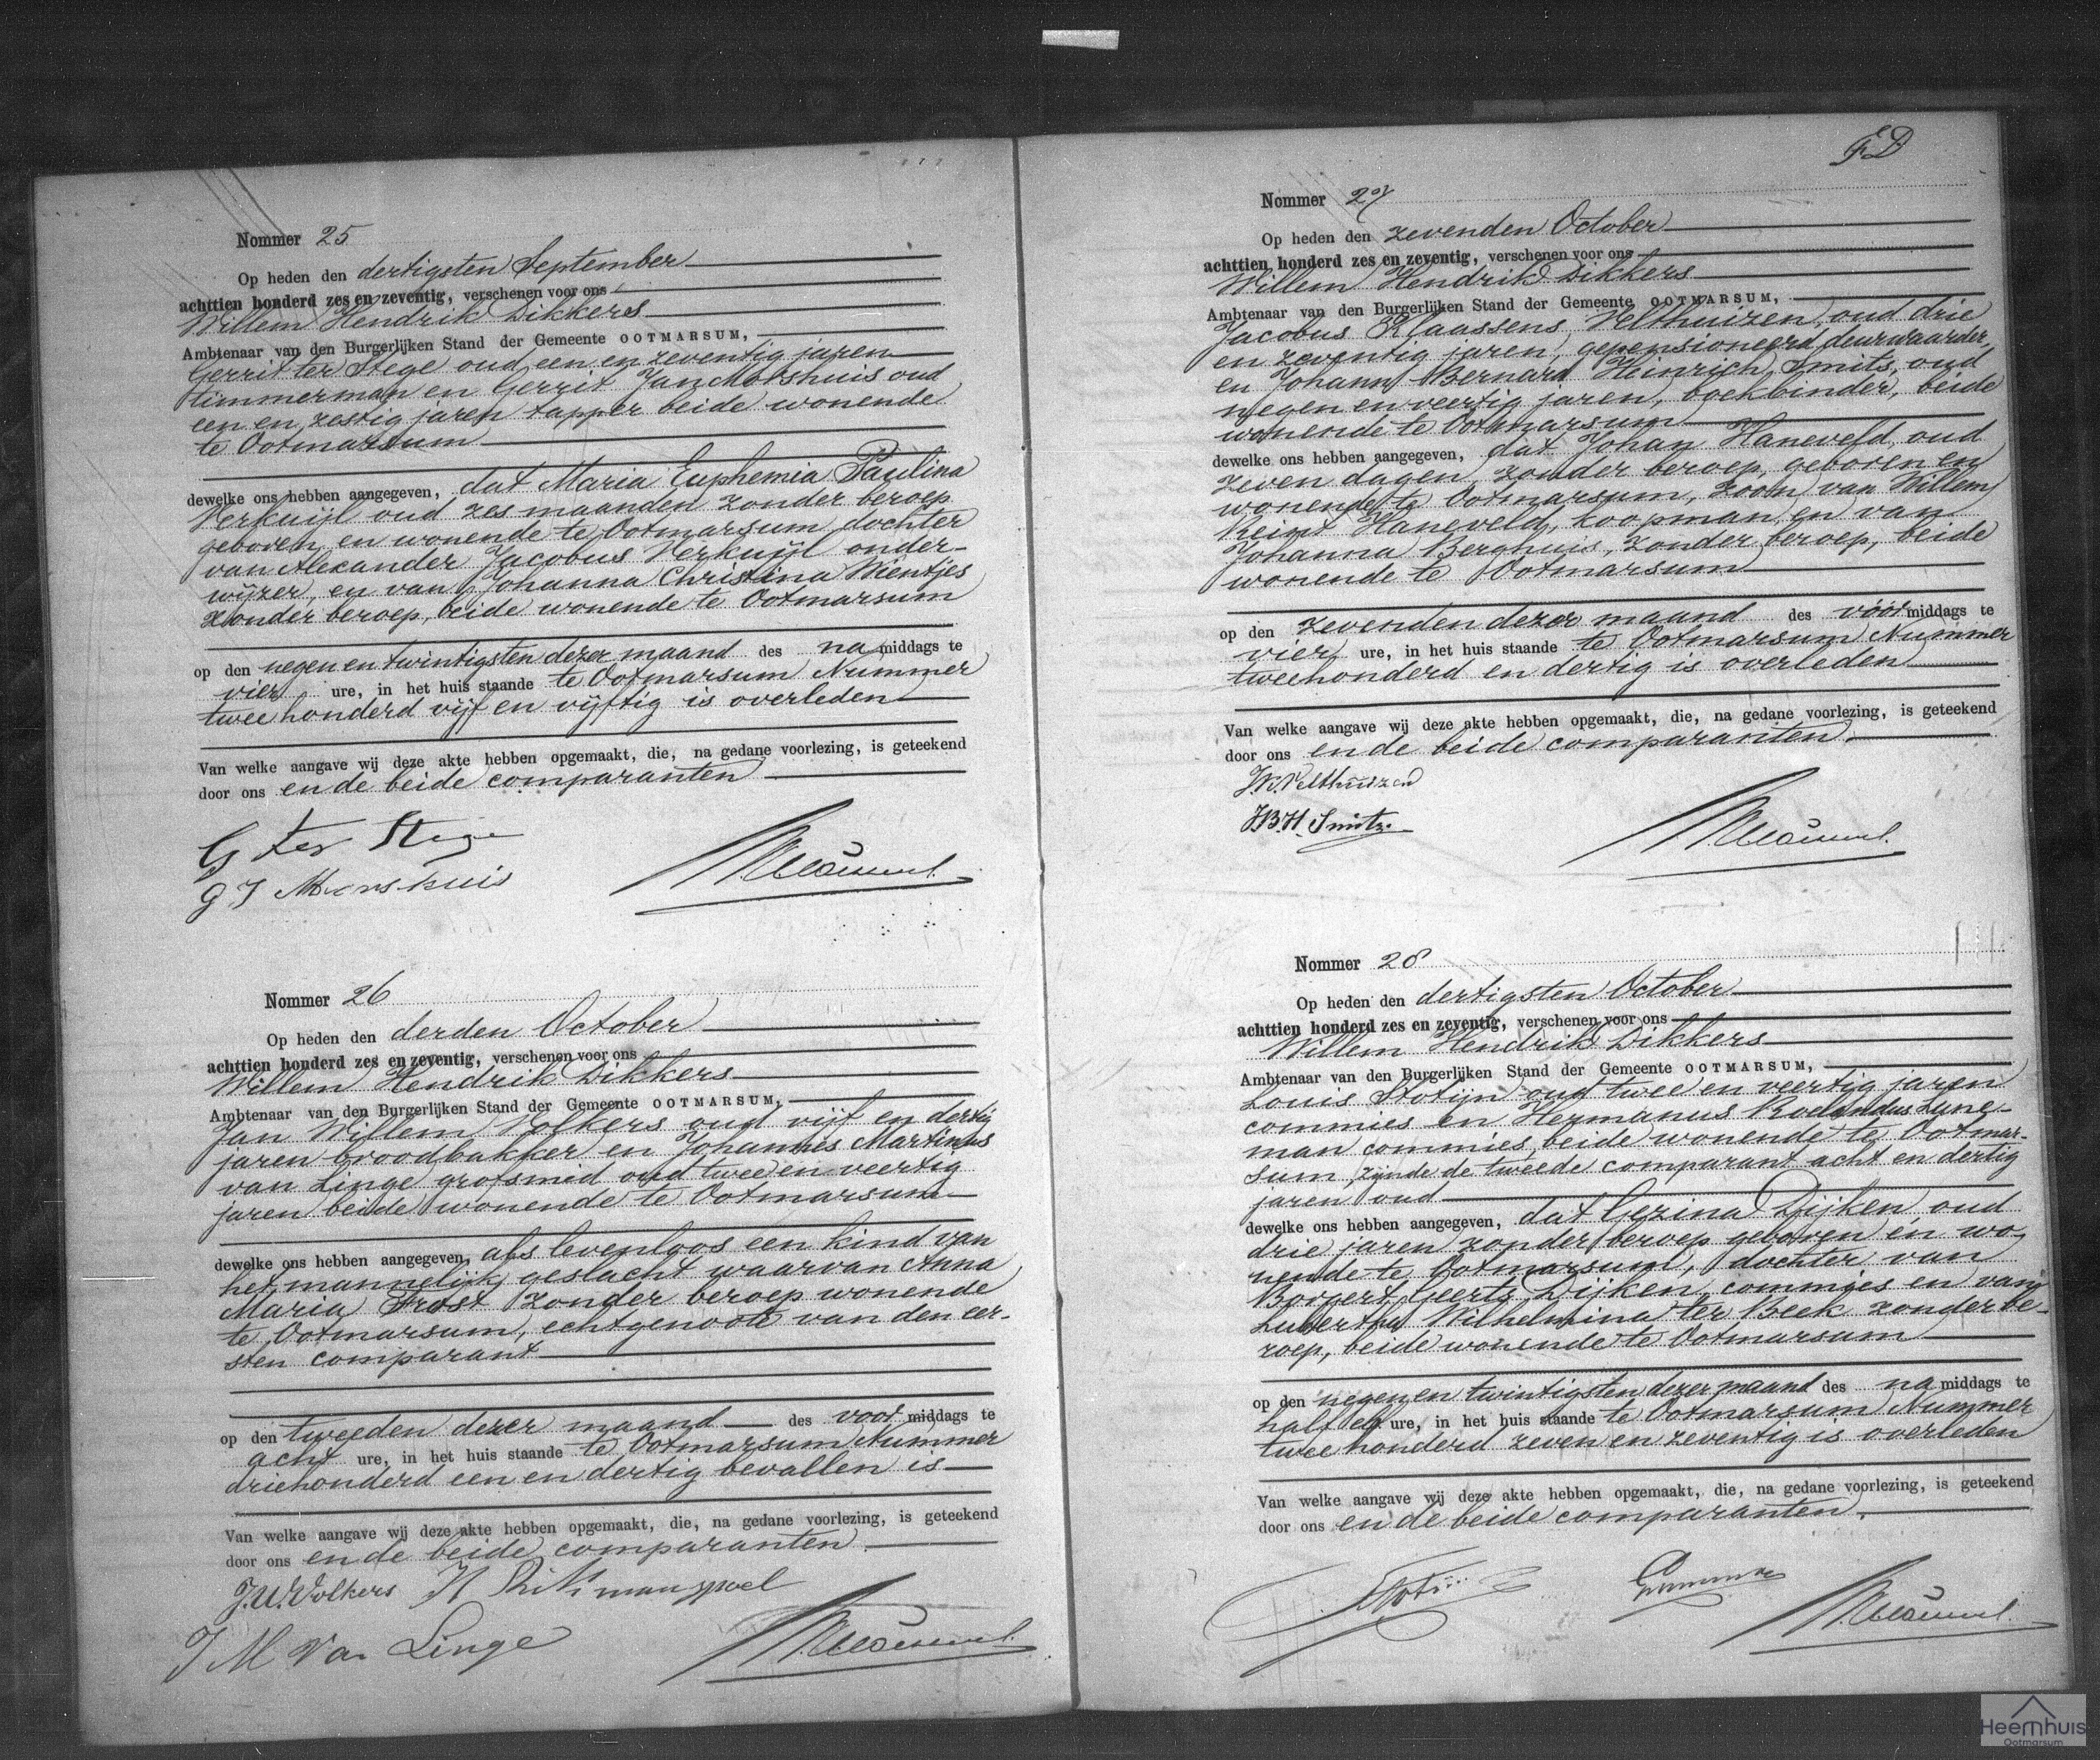 Nommer 25
Op heden den dertigsten September
achttien honderd zes en zeventig, verschenen voor ons
Willem Hendrik Dikkers
Ambtenaar van den Burgerlijken Stand der Gemeente OOTMARSUM,
Gerrit ter Stege oud een en zeventig jaren
timmerman en Gerrit Jan Morshuis oud
een en zestig jaren tapper beide wonende
te Ootmarsum
dewelke ons hebben aangegeven, dat Maria Euphemia Paulina
Verkuijl oud zes maanden zonder beroep
geboren en wonende te Ootmarsum dochter
van Alexander Jacobus Verkuijl onder-
wijzer, en van Johanna Christina Wientjes
zonder beroep, beide wonende te Ootmarsum
op den negen en twintigsten dezer maand des na middags te
vier ure, in het huis staande te Ootmarsum Nummer
twee honderd vijf en vijftig is overleden
Van welke aangave wij deze akte hebben opgemaakt, die, na gedane voorlezing, is geteekend
door ons en de beide comparanten
G ter Stege
G J Morshuis
Nommer 26
Op heden den derden October
achttien honderd zes en zeventig, verschenen voor ons
Willem Hendrik Dikkers
Ambtenaar van den Burgerlijken Stand der Gemeente OOTMARSUM,
Jan Willem Volkers oud vijf en dertig
jaren broodbakker en Johannes Martinus
van Linge grofsmid oud twee en veertig
jaren beide wonende te Ootmarsum
dewelke ons hebben aangegeven, als levenloos een kind van
het mannelijk geslacht waarvan Anna
Maria Frost zonder beroep wonende
te Ootmarsum, echtgenoote van den eer-
sten comparant
op den tweeden dezer maand des voor middags te
acht ure, in het huis staande te Ootmarsum Nummer
driehonderd een en dertig bevallen is
Van welke aangave wij deze akte hebben opgemaakt, die, na gedane voorlezing, is geteekend
door ons en de beide comparanten
J.W. Volkers
J M Van Linge
Nommer 27
Op heden den zevenden October
achttien honderd zes en zeventig, verschenen voor ons
Willem Hendrik Dikkers
Ambtenaar van den Burgerlijken Stand der Gemeente OOTMARSUM,
Jacobus Klaassens Velthuizen, oud drie
en zeventig jaren, gepensioneerd deurwaarder,
en Johann Bernard Heinrich Smits, oud
negen en veertig jaren, boekbinder, beide
wonende te Ootmarsum
dewelke ons hebben aangegeven, dat Johan Haneveld, oud
zeven dagen, zonder beroep, geboren en
wonende te Ootmarsum, zoon van Willem
Reint Haneveld, koopman, en van
Johanna Berghuis, zonder beroep, beide
wonende te Ootmarsum
op den zevenden dezer maand des vóór middags te
vier ure, in het huis staande te Ootmarsum Nummer
tweehonderd en dertig is overleden
Van welke aangave wij deze akte hebben opgemaakt, die, na gedane voorlezing, is geteekend
door ons en de beide comparanten.
J.K. Velthuizen
J.B.H. Smitz.
Nommer 28
Op heden den dertigsten October
achttien honderd zes en zeventig, verschenen voor ons
Willem Hendrik Dikkers
Ambtenaar van den Burgerlijken Stand der Gemeente OOTMARSUM,
Louis Stotijn oud twee en veertig jaren
commies en Hermanus Roelandus Lune-
man commies, beide wonende te Ootmar-
sum, zijnde de tweede comparant acht en dertig
jaren oud
dewelke ons hebben aangegeven, dat Gezina Dijken, oud
drie jaren zonder beroep geboren en wo-
nende te Ootmarsum, dochter van
Borgert Geerts Dijken, commies en van
Lubertha Wilhelmina ter Beek zonder be-
roep, beide wonende te Ootmarsum
op den negen en twintigsten dezer maand des na middags te
half elf ure, in het huis staande te Ootmarsum Nummer
twee honderd zeven en zeventig is overleden
Van welke aangave wij deze akte hebben opgemaakt, die, na gedane voorlezing, is geteekend
door ons en de beide comparanten.
Heemhuis
Ootmarsum